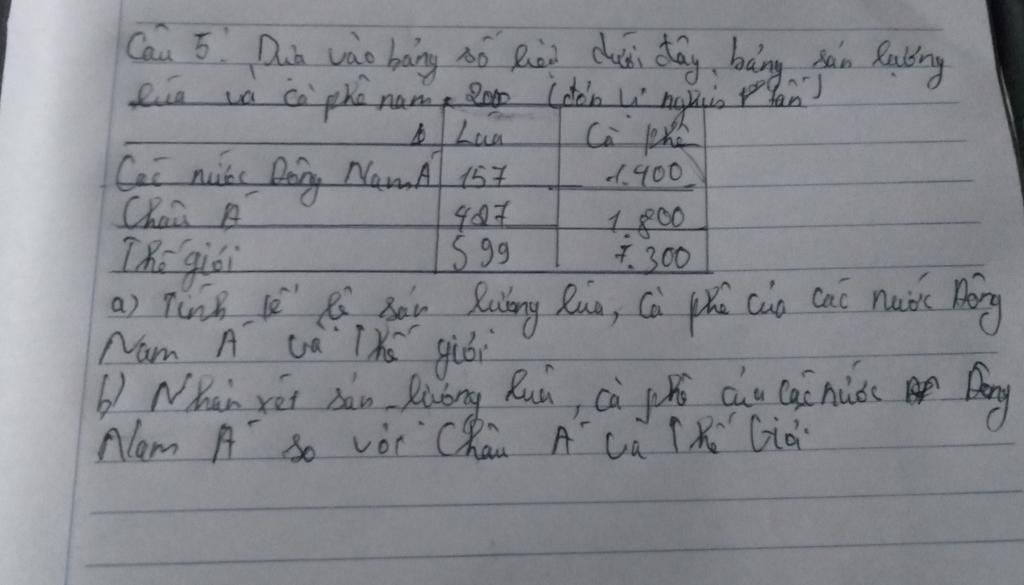 Câu 5: Dựa vào bảng số liệu dưới đây, bảng sản lượng
lúa và cà phê năm 2000 (đơn vị nghìn tấn)
Lúa Cà phê
Các nước Đông Nam Á 157 1.400
Châu Á 427 1.800
Thế giới 599 7.300
a) Tính tỉ lệ sản lượng lúa, cà phê của các nước Đông
Nam Á và Thế giới
b) Nhận xét sản lượng lúa, cà phê của các nước Đông
Nam Á so với Châu Á và Thế Giới